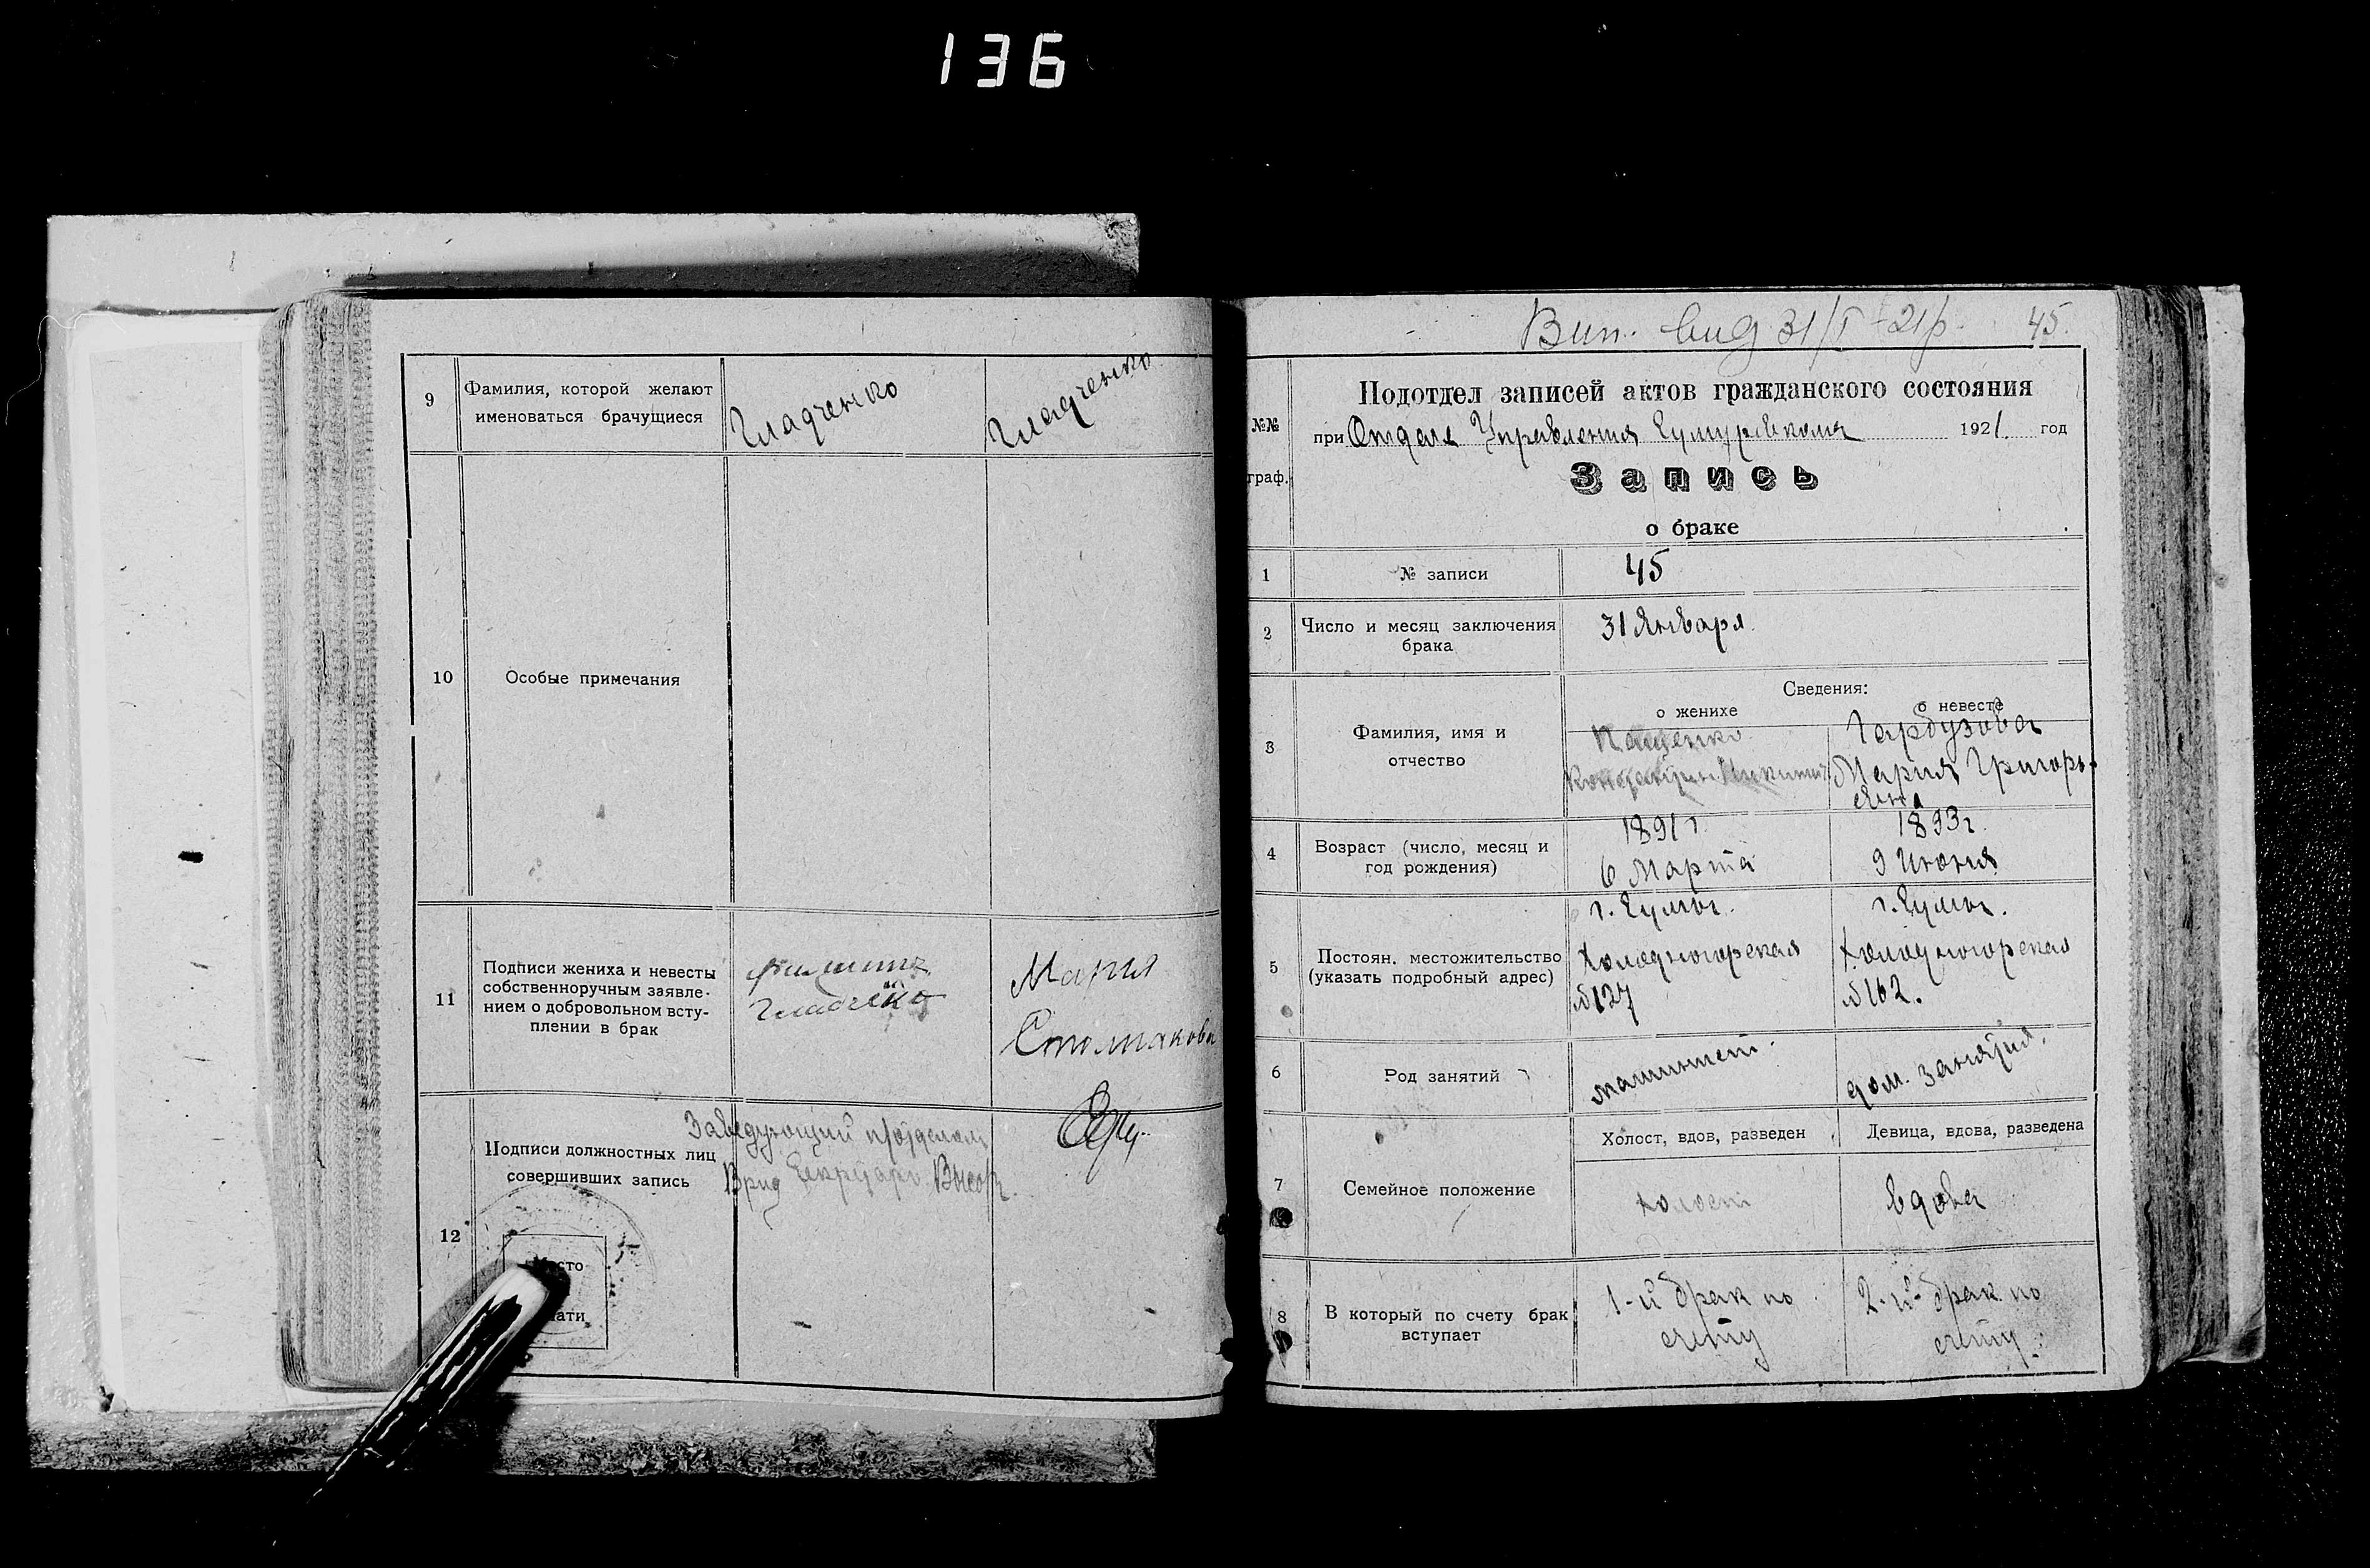 136
9
Фамилия, которой желают
именоваться брачущиеся
Гладченко
Гладченко
10
Особые примечания
11
Подписи жениха и невесты
собственноручным заявле-
нием о добровольном всту-
плении в брак
Гладченко
Мария
Столмакова
12
Подписи должностных лиц
совершивших запись
Заведующий п/отделом
Врид Секретаря
Место
Вип. вид 31/I-21р. 45.
№№
граф.
Подотдел записей актов гражданского состояния
при Отделе Управления Сумуревкома 1921 год
Запись
о браке
1
№ записи
45
2
Число и месяц заключения
брака
31 Января
3
Фамилия, имя и
отчество
Сведения:
о женихе
о невесте
Пащенко
Константин Никитич
Гарбузова
Мария Григорь-
евна
4
Возраст (число, месяц и
год рождения)
1891 г.
6 Марта
1893 г.
9 Июня
5
Постоян. местожительство
(указать подробный адрес)
г. Сумы.
Холодногорская
№127
г. Сумы.
Холодногорская
№162.
6
Род занятий
машинист.
дом. занятия.
7
Семейное положение
Холост, вдов, разведен
Девица, вдова, разведена
холост
вдова
8
В который по счету брак
вступает
1-й брак по
счету
2-й брак по
счету